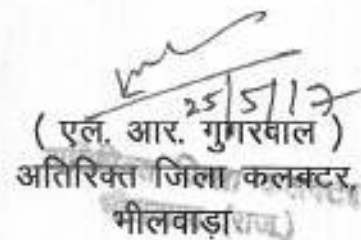 25/5/17
( एल. आर. गुगरवाल )
अतिरिक्त जिला कलक्टर,
भीलवाड़ा
(राज.)